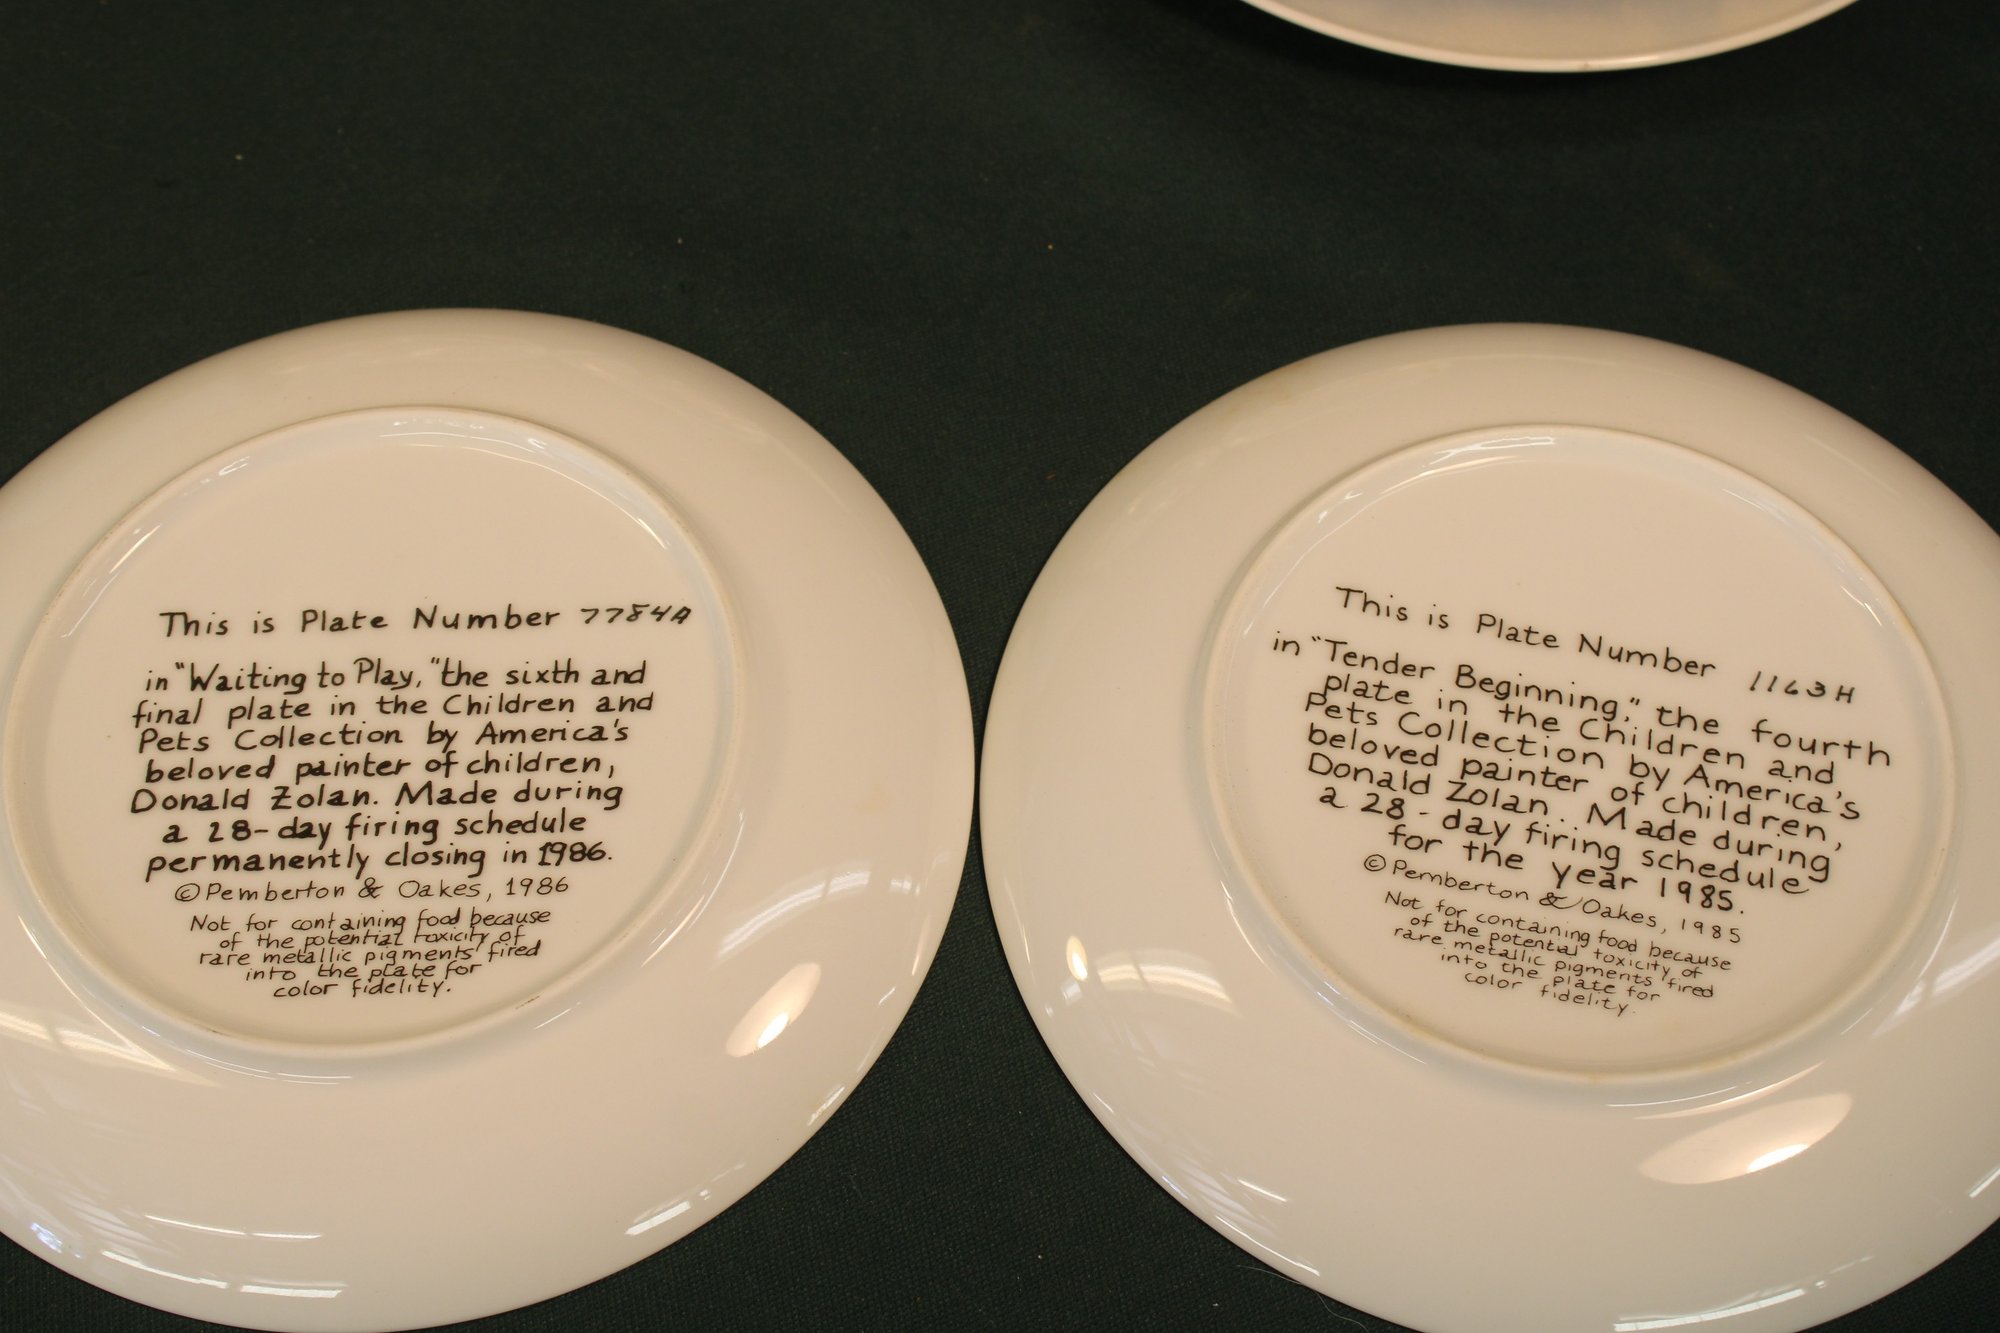 This is Plate Number 7784A
in "Waiting to Play," the sixth and
final plate in the Children and
Pets Collection by America's
beloved painter of children,
Donald Zolan. Made during
a 28-day firing schedule
permanently closing in 1986.
© Pemberton & Oakes, 1986
Not for containing food because
of the potential toxicity of
rare metallic pigments fired
into the plate for
color fidelity.
This is Plate Number 1163H
in "Tender Beginning," the fourth
plate in the Children and
Pets Collection by America's
beloved painter of children,
Donald Zolan. Made during
a 28-day firing schedule
for the year 1985.
© Pemberton & Oakes, 1985
Not for containing food because
of the potential toxicity of
rare metallic pigments fired
into the plate for
color fidelity.